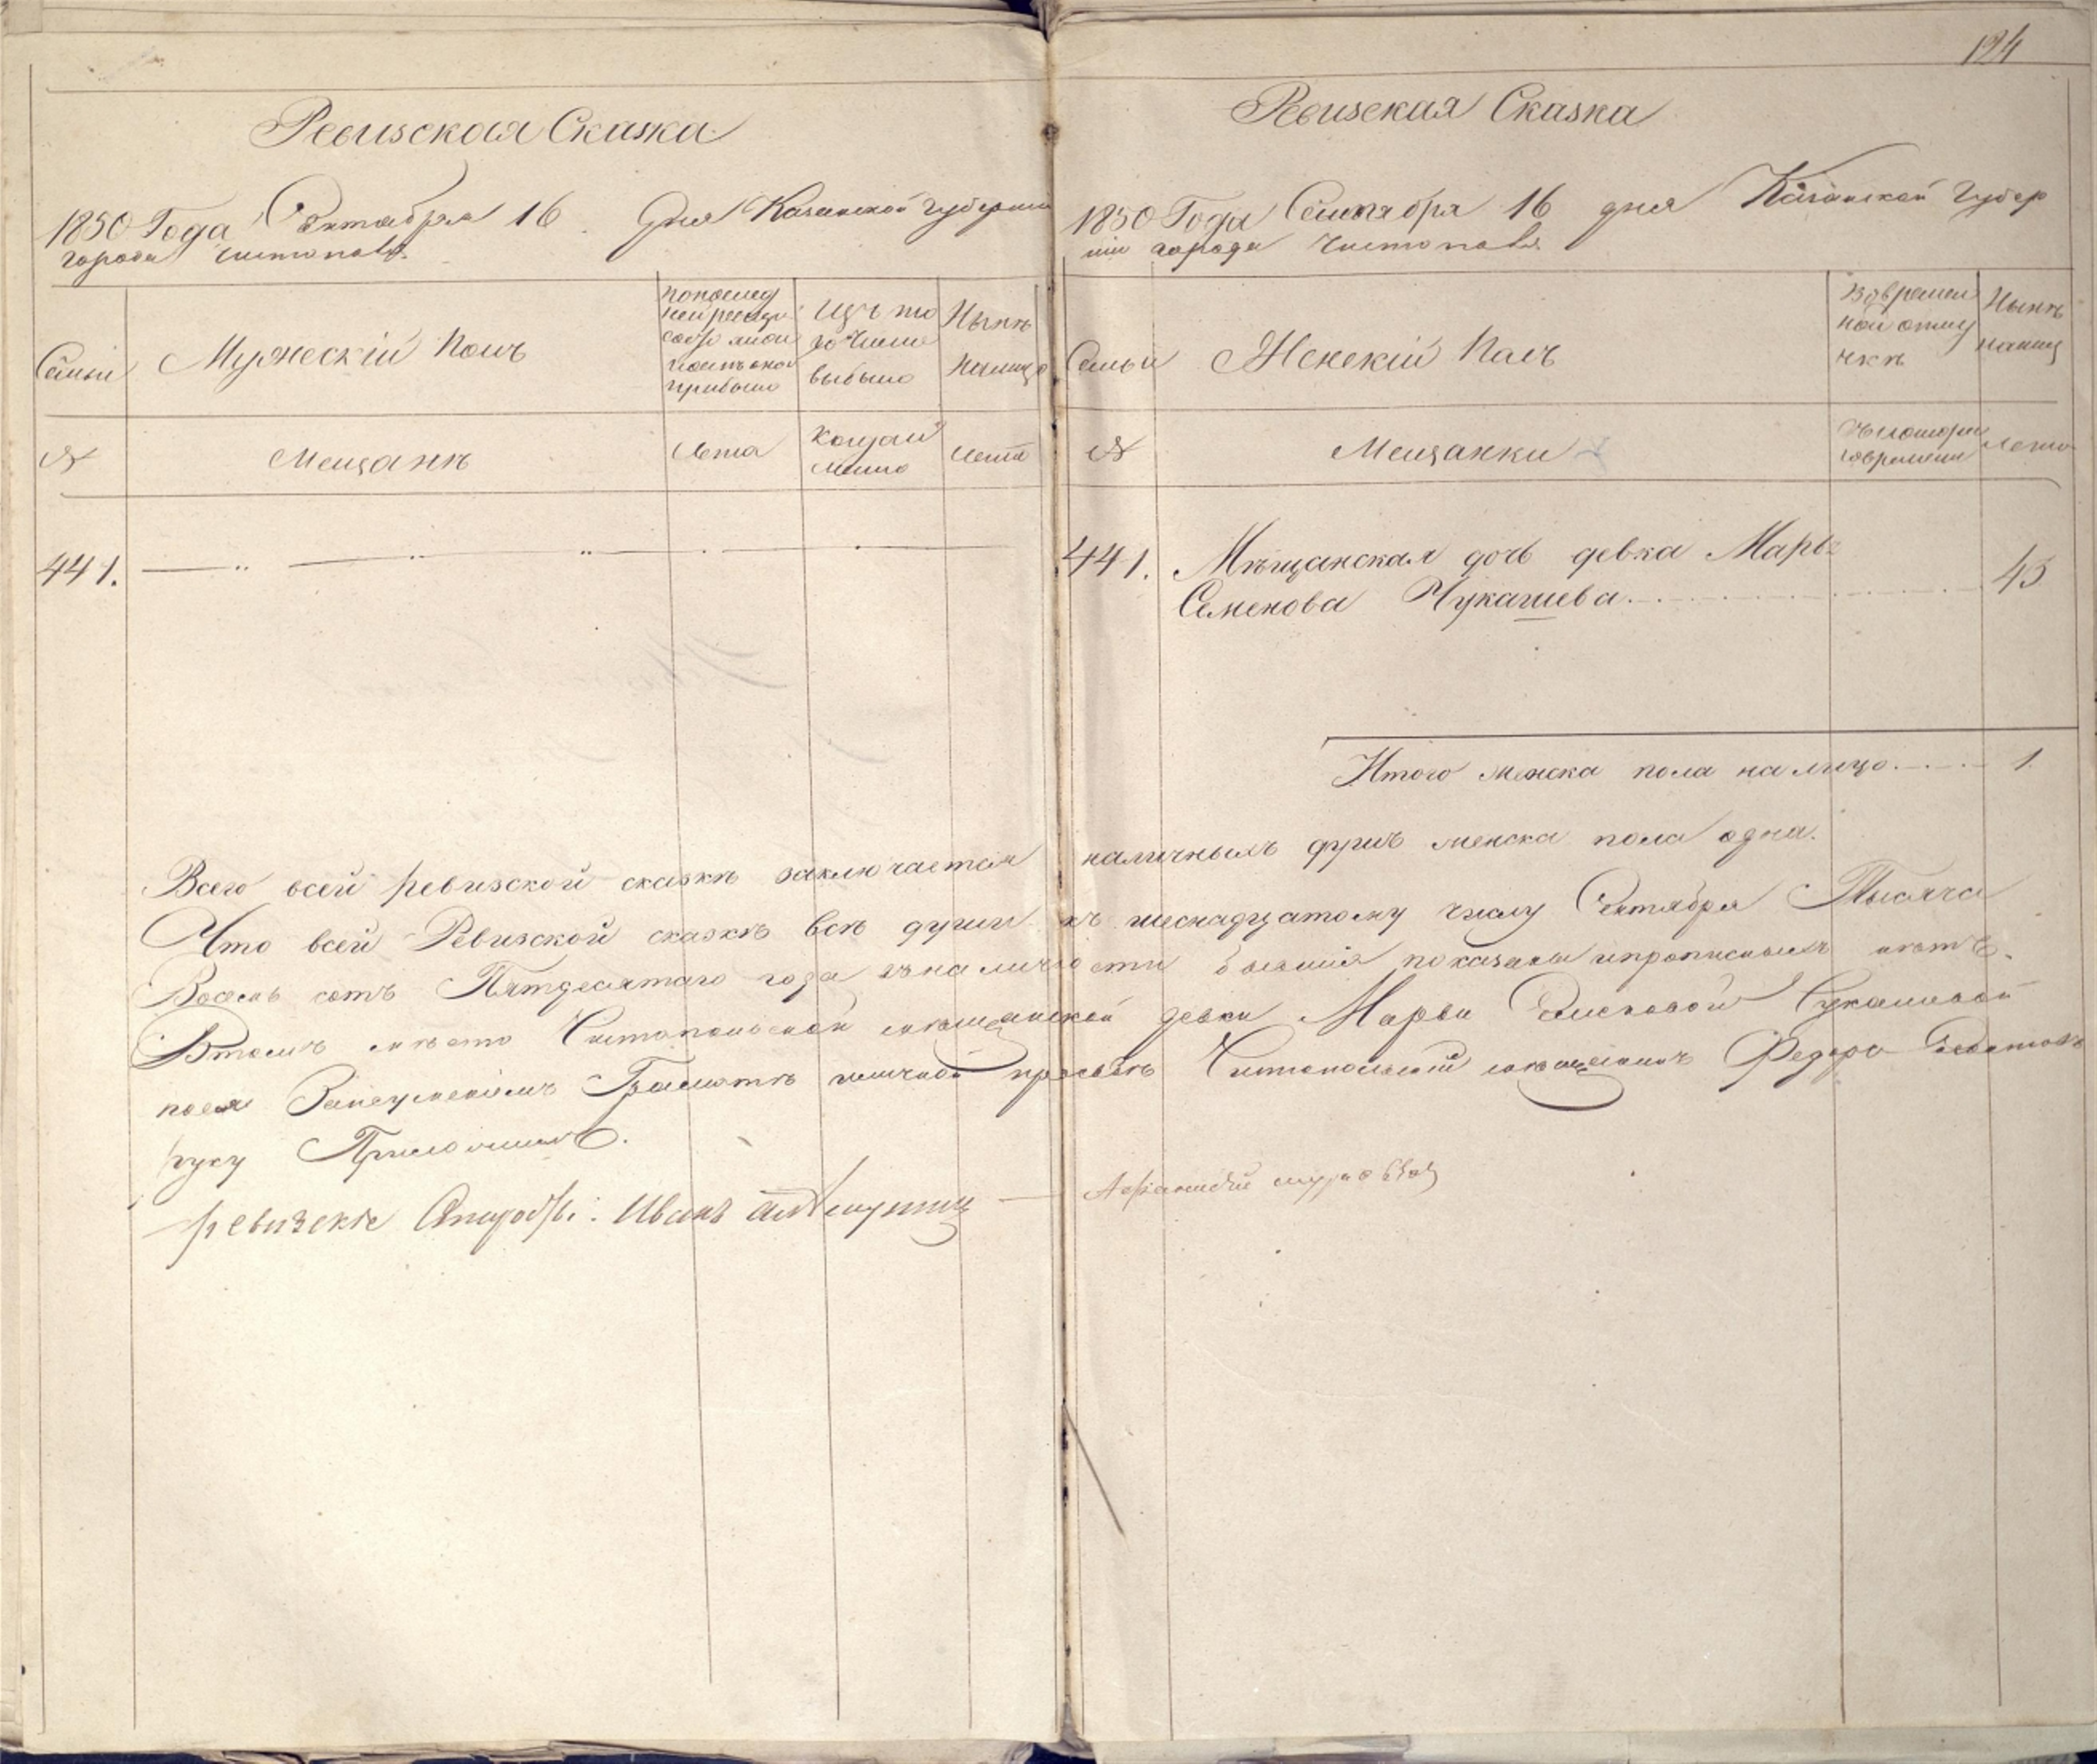 124
Ревизская Сказка
1850 Года Сентября 16 Дня Казанской губернии
города Чистополя
Семьи
Мужескій Полъ
По послед
ней ревизіи
состояло и
после оной
прибыло
Изъ то
го числа
выбыло
Ныне
налицо
№
Мещане
Лета
Когда
именно
Лета
441.
Ревизская Сказка
1850 Года Сентября 16 дня Казанской Губер
ніи города Чистополя
Семьи
Женскій Полъ
Во времен
ной отлу
чкѣ
Нынѣ
налиц
№
Мещанки
Съ котораго
времени
Лета
441. Мѣщанская дочь девка Марья
Семенова Чукашева 45
Итого женска пола на лицо 1
Всего всей ревизской сказкѣ заключается наличныхъ душъ женска пола одна.
Что всей Ревизской сказкѣ всѣ души къ шеснадцатому числу Сентября Тысяча
Восемь сотъ Пятдесятаго года въ наличности бывшія показаны и прописныхъ нѣтъ.
Втомъ место Чистопольской мещанской девки Марьи Семеновой Чукашевой
по ея Неумѣнію Грамотѣ личной прозьбѣ Чистопольской мещанинъ Федоръ
руку Приложилъ.
ревизскіе Иванъ